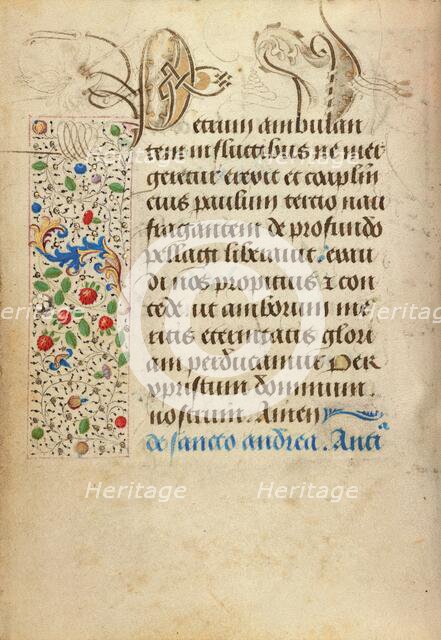 Petrum ambulan
tem in fluctibus ne mer
geretur erexit et coaplin
eius paulum tercio nau
fragantem de profundo
pellagi liberauit. exau
di nos propicius ⁊ con
cede. ut amborum me
ritis eternitatis glori
am perducamur Per
xpristum dominum
nostrum. Amen
de sancto andrea. Antiᵃ
Heritage
Heritage
Heritage
Heritage
Heritage
Heritage